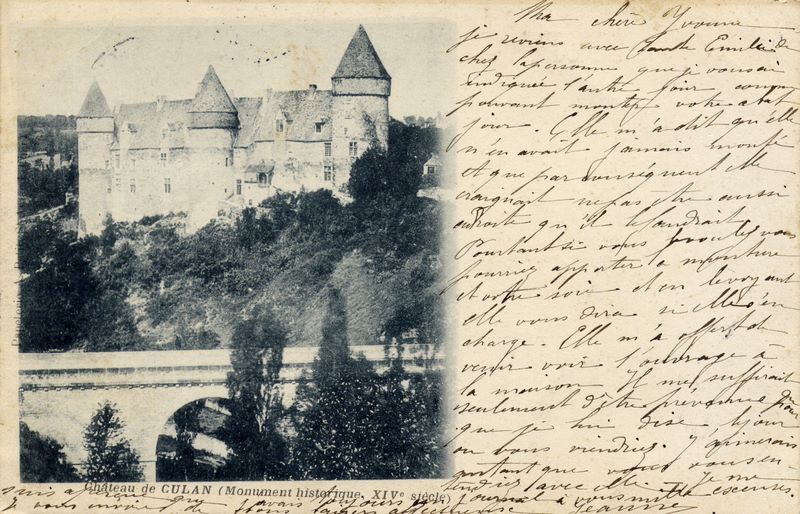 Ma chère Yvonne
je reviens avec tante Emilie de
chez la personne que je vous ai
indiquée l'autre jour comme
pouvant monter votre abat
jour. Elle m'a dit qu'elle
n'en avait jamais monté
et que par conséquent elle
craignait ne pas être aussi
adroite qu'il le faudrait
Pourtant si vous voulez vous
pourriez apporter la monture
et votre soie et en le voyant
elle vous dira si elle s'en
charge. Elle m'a offert de
venir voir l'ouvrage à
la maison Il me suffirait
seulement d'être prévenue pour
que je lui dise le jour
où vous viendriez. J'aimerais
pourtant que vous vous en
tendiez avec elle. Je me
suis aperçue que j'avais toujours journal à vous mille excuses.
je vous envoie
Jeanne
Château de CULAN (Monument historique, XIVe siècle)